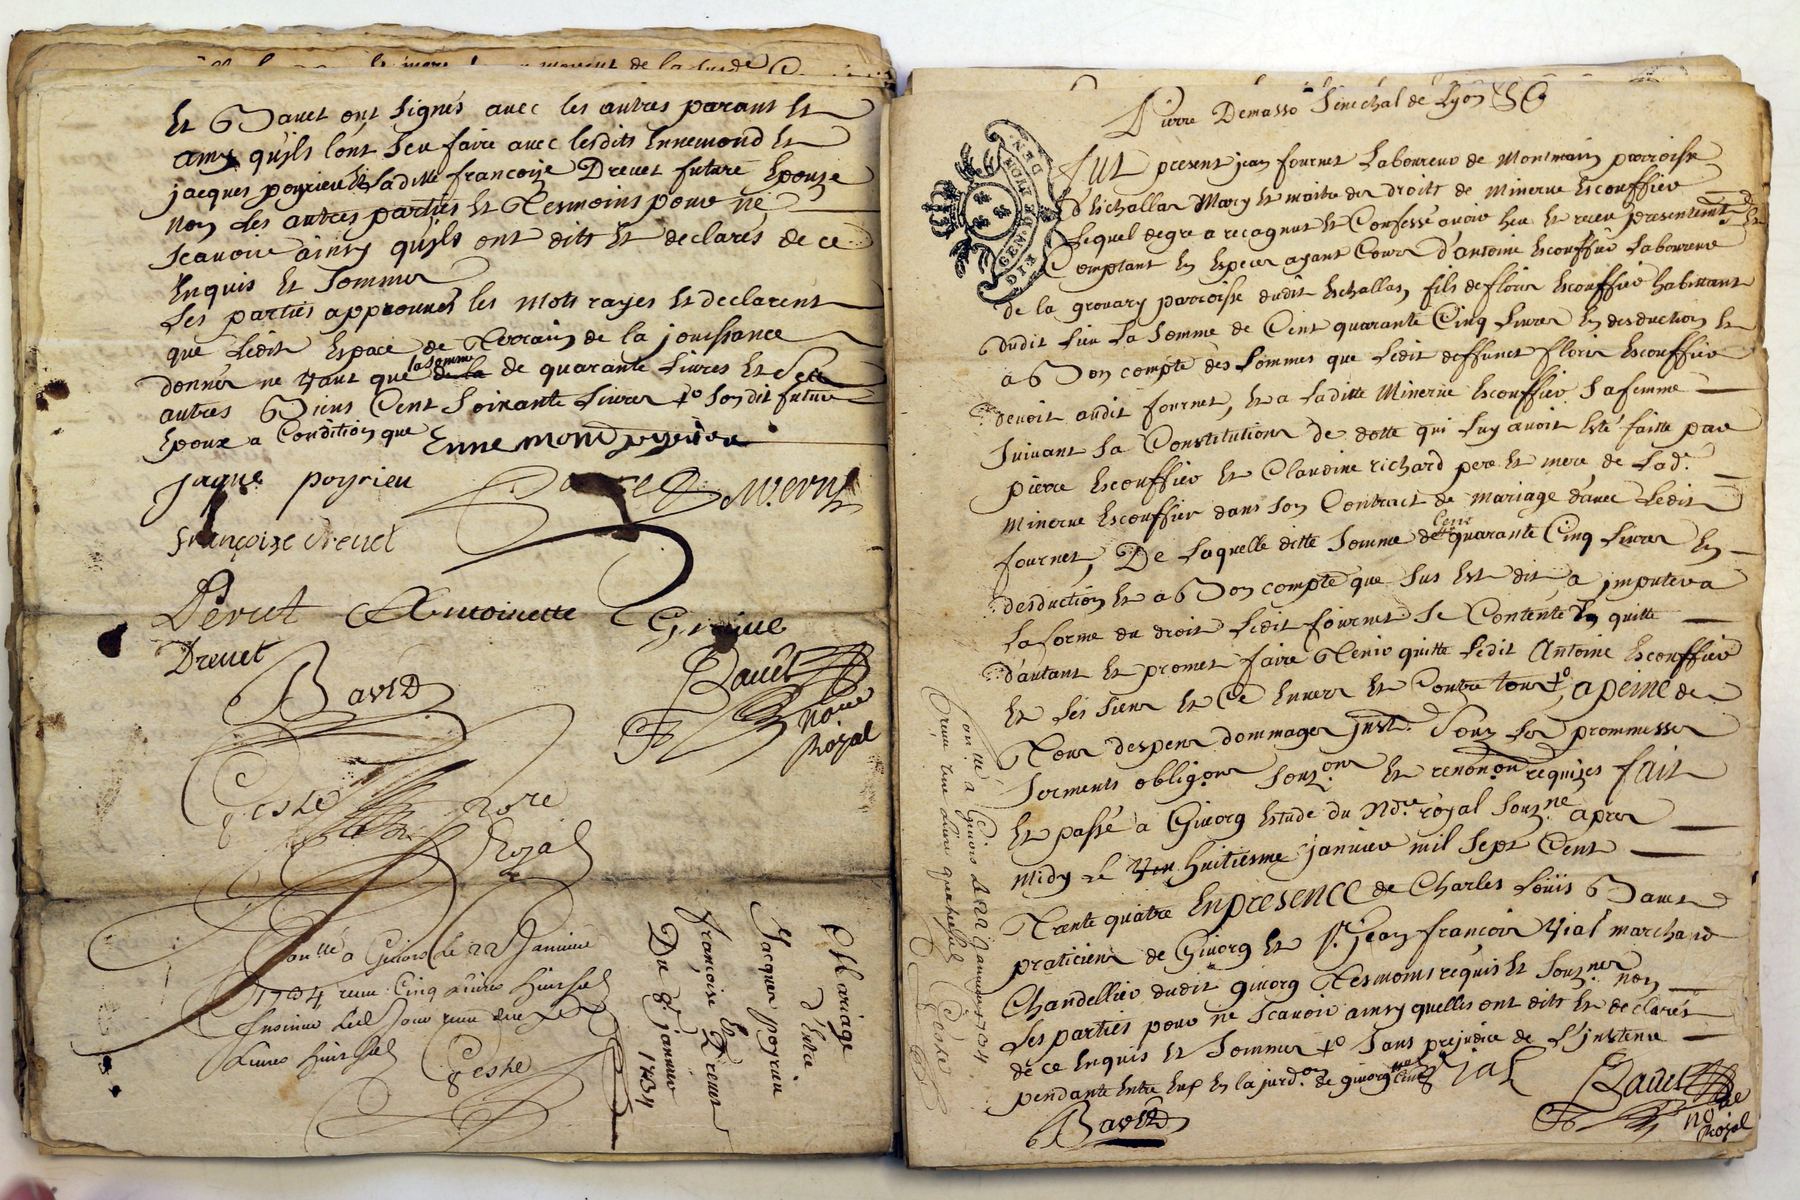 Et Bavet ont signés avec les autres parans et
amys qu'ils l'ont sceu faire avec lesdits Ennemond et
jacques poyrieu et laditte françoise Drevet future Epouze
non les autres parties et tesmoins pour ne
scavoir ainsy qu'ils ont dits et declarés de ce
Enquis et sommes
Les parties approuvés les mots rayes et declarent
que ledit Espace de terrain de la jouissance
la somme
donnés ne vaut que de la de quarante livres et
autres Biens Cent soixante livres son dit futur
Epoux a Condition que Ennemond poyrieu
jaque poyrieu
françoise drevet
Antoinette
Drevet
Bavet
Bavet
no.re
Royal
Geste
Royal
a Givors le 22 Janvier
1734 receu Cinq livres
livres
Geste
Mariage
d'Entre
Jacques poyrieu
Et
françoise Drevet
Du 8e janvier
1734
Pierre Demasso Senechal de Lyon
GEN. DE LYON
Fut present jean fournet Laboureur de Montmain parroisse
d'Eschallas Mary et maitre des droits de Minerve Escouffier
Lequel de gré a recognut et Confessé avoir heu et receu presentement
Comptant En Especes ayant Cours d'antoine Escouffier Laboureur
de la grouary parroisse dudit Eschallas, fils de floris Escouffier habittant
dudit lieu La somme de Cent quarante Cinq livres En desduction et
a Bon compte des sommes que ledit deffunct floris Escouffier
devoit audit fournet, et a laditte Minerve Escouffier sa femme
suivant la Constitution de dotte qui luy avoit Esté faitte par
pierre Escouffier et Claudine richard pere et mere de lad.
Minerve Escouffier dans son Contract de mariage d'avec ledit
Cent
fournet, De laquelle ditte somme de quarante Cinq livres En
desduction et a Bon compte que sus est dit, a imputer a
la forme du droit ledit fournet se Contente En quitte
d'autant et promet faire tenir quitte ledit Antoine Escouffier
et les siens et Ce Envers et Contre tous, a peine de
tous despens dommages inst. sous les prommesses
serments oblig.ons souz.ons et renon.on requizes fait
et passé a Givorg Estude du No.re royal souz.ne apres
midy le huitiesme janvier mil sept Cent
trente quatre En presence de Charles Loüis Bavet
praticien de Givorg et Sr. jean françois Vial marchand
Chandellier dudit givorg tesmoins requis et souz.nes non
les parties pour ne scavoir ainsy quelles ont dits et declarés
de ce Enquis et sommes sans prejudice de L'instance
pendante Entre Eux En la jurd.on de givorg
Vial
Bavet
Bavet
no.re
Royal
a Givors le 22 Janvier 1734
receu une livre
Geste